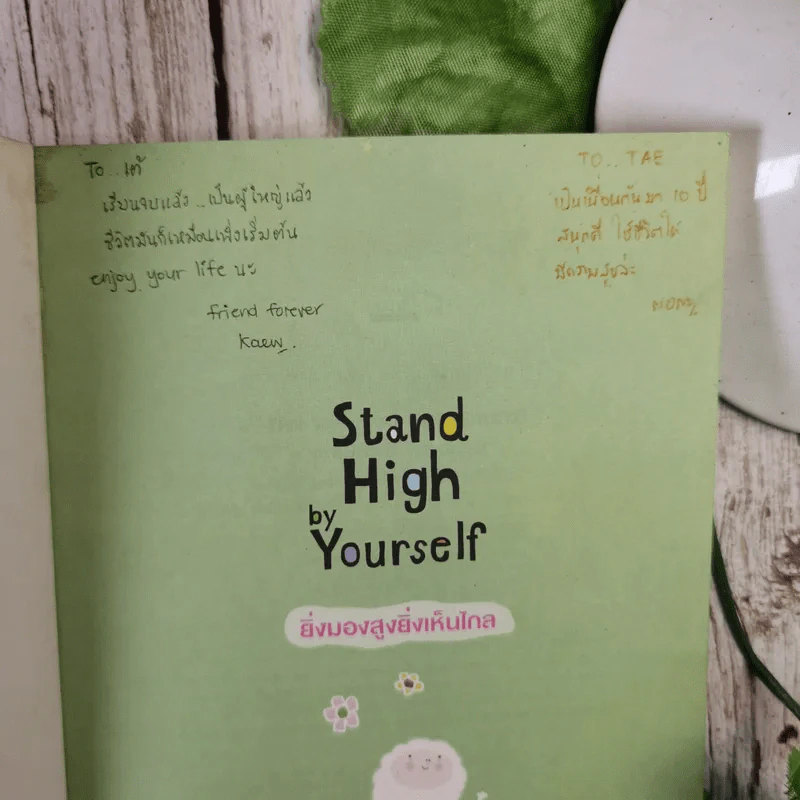 To...เต้
เรียนจบแล้ว...เป็นผู้ใหญ่แล้ว
ชีวิตมันก็เหมือนเพิ่งเริ่มต้น
enjoy your life นะ
friend forever
Kaew.
TO...TAE
เป็นเพื่อนกันมา 10 ปี
สนุกดี ใช้ชีวิตให้
มีความสุขล่ะ
Stand
High
by
Yourself
ยิ่งมองสูงยิ่งเห็นไกล